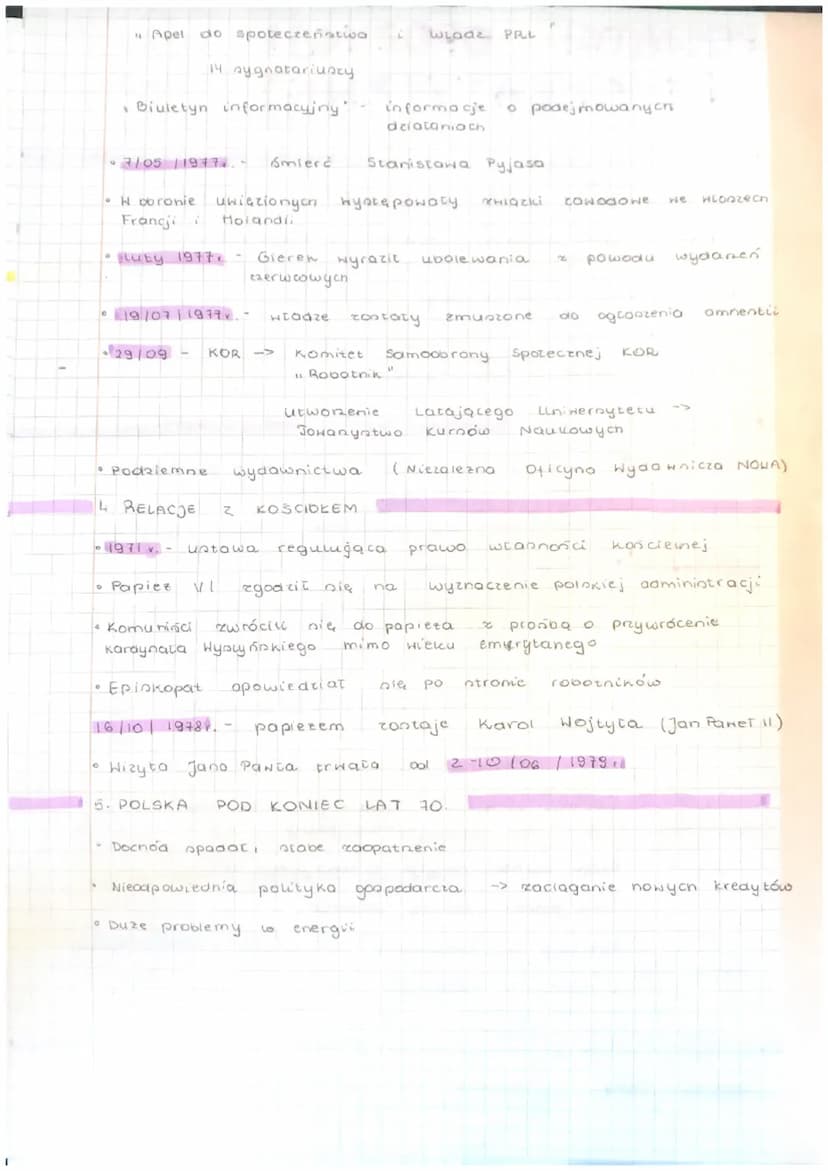 "Apel do społeczeństwa i władz PRL"
14 sygnatariuszy
"Biuletyn informacyjny" - informacje o podejmowanych
działaniach
• 7/05/1977r. - śmierć Stanisława Pyjasa
• W obronie uwięzionych występowały związki zawodowe we Włoszech
Francji i Holandii
• luty 1977r - Gierek wyraził ubolewania z powodu wydarzeń
czerwcowych
• 19/07/1977r. - władze zostały zmuszone do ogłoszenia amnestii
• 29/09 - KOR -> Komitet Samoobrony Społecznej KOR
"Robotnik"
utworzenie Latającego Uniwersytetu ->
Towarzystwo Kursów Naukowych
• Podziemne wydawnictwa (Niezależna Oficyna Wydawnicza NOWA)
4 RELACJE Z KOŚCIOŁEM
• 1971 r. - ustawa regulująca prawo własności kościelnej
• Papież VI zgodził się na wyznaczenie polskiej administracji
• Komuniści zwrócili się do papieża z prośbą o przywrócenie
kardynała Wyszyńskiego mimo wieku emerytanego
• Episkopat opowiedział się po stronie robotników
16/10/1978r. - papieżem zostaje Karol Wojtyła (Jan Paweł II)
• Wizyta Jana Pawła trwała od 2-10/06/1979r
5. POLSKA POD KONIEC LAT 70.
• Dochód spadał, słabe zaopatrzenie
• Nieodpowiednia polityka gospodarcza -> zaciąganie nowych kredytów
• Duże problemy w energii